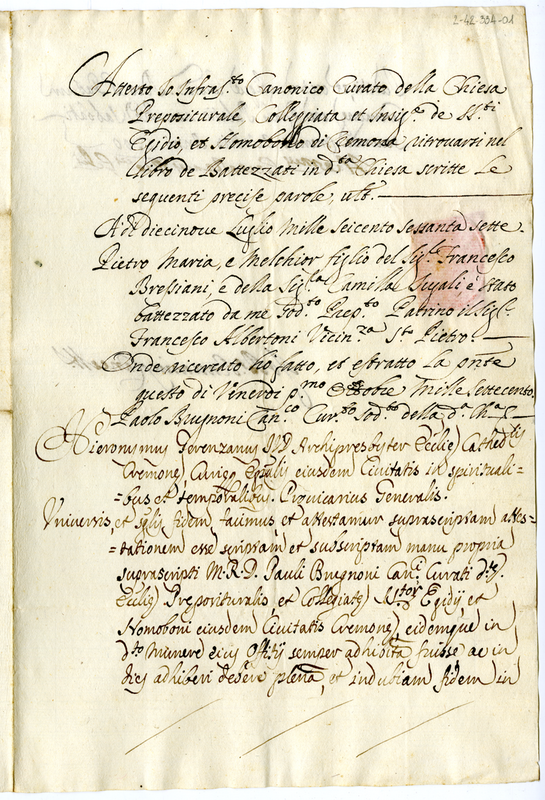 2-42-334-01
Attesto Io Infras.to Canonico Curato della Chiesa
Prepositurale, Collegiata et Insig.e de SS.ti
Egidio, et Homobono di Cremona ritrovarsi nel
Libro de Battezzati in d.ta Chiesa scritte Le
sequenti precise parole, ult.
A di diecinove Luglio Mille Seicento sessanta sette
Pietro Maria, e Melchior figlio del Sig.r Francesco
Bressiani e della Sig.ra Camilla è stato
battezzato da me Sod.to Prep.to Patrino il Sig.r
Francesco Albertoni Vicin.za S.to Pietro.
Onde ricercato hò fatto, et estratto La pnte
questo di Venerdi p.mo Ottobre Mille Settecento.
Paolo Brugnoni Can.co Cur.to Sod.to della d.a Ch.a
Hieronymus J.V.D. Archipresbyter Ecclie Cathedlis
Cremone, eiusdem Civitatis in spirituali=
=bus et temporalibus Provicarius Generalis.
Universis, et sglis fidem facimus, et attestamur suprascriptam attes=
=tationem esse scriptam, et subscriptam manu propria
suprascripti M.R.D. Pauli Brugnoni Can.ci Curati d.e
Ecclie Preposituralis, et Collegiate SS.tor Egidij et
Homoboni eiusdem Civitatis Cremone, eidemque in
d.to Munere eius Offitij semper adhibita fuisse ac in
dies adhiberi debere plena, et indubiam fidem in